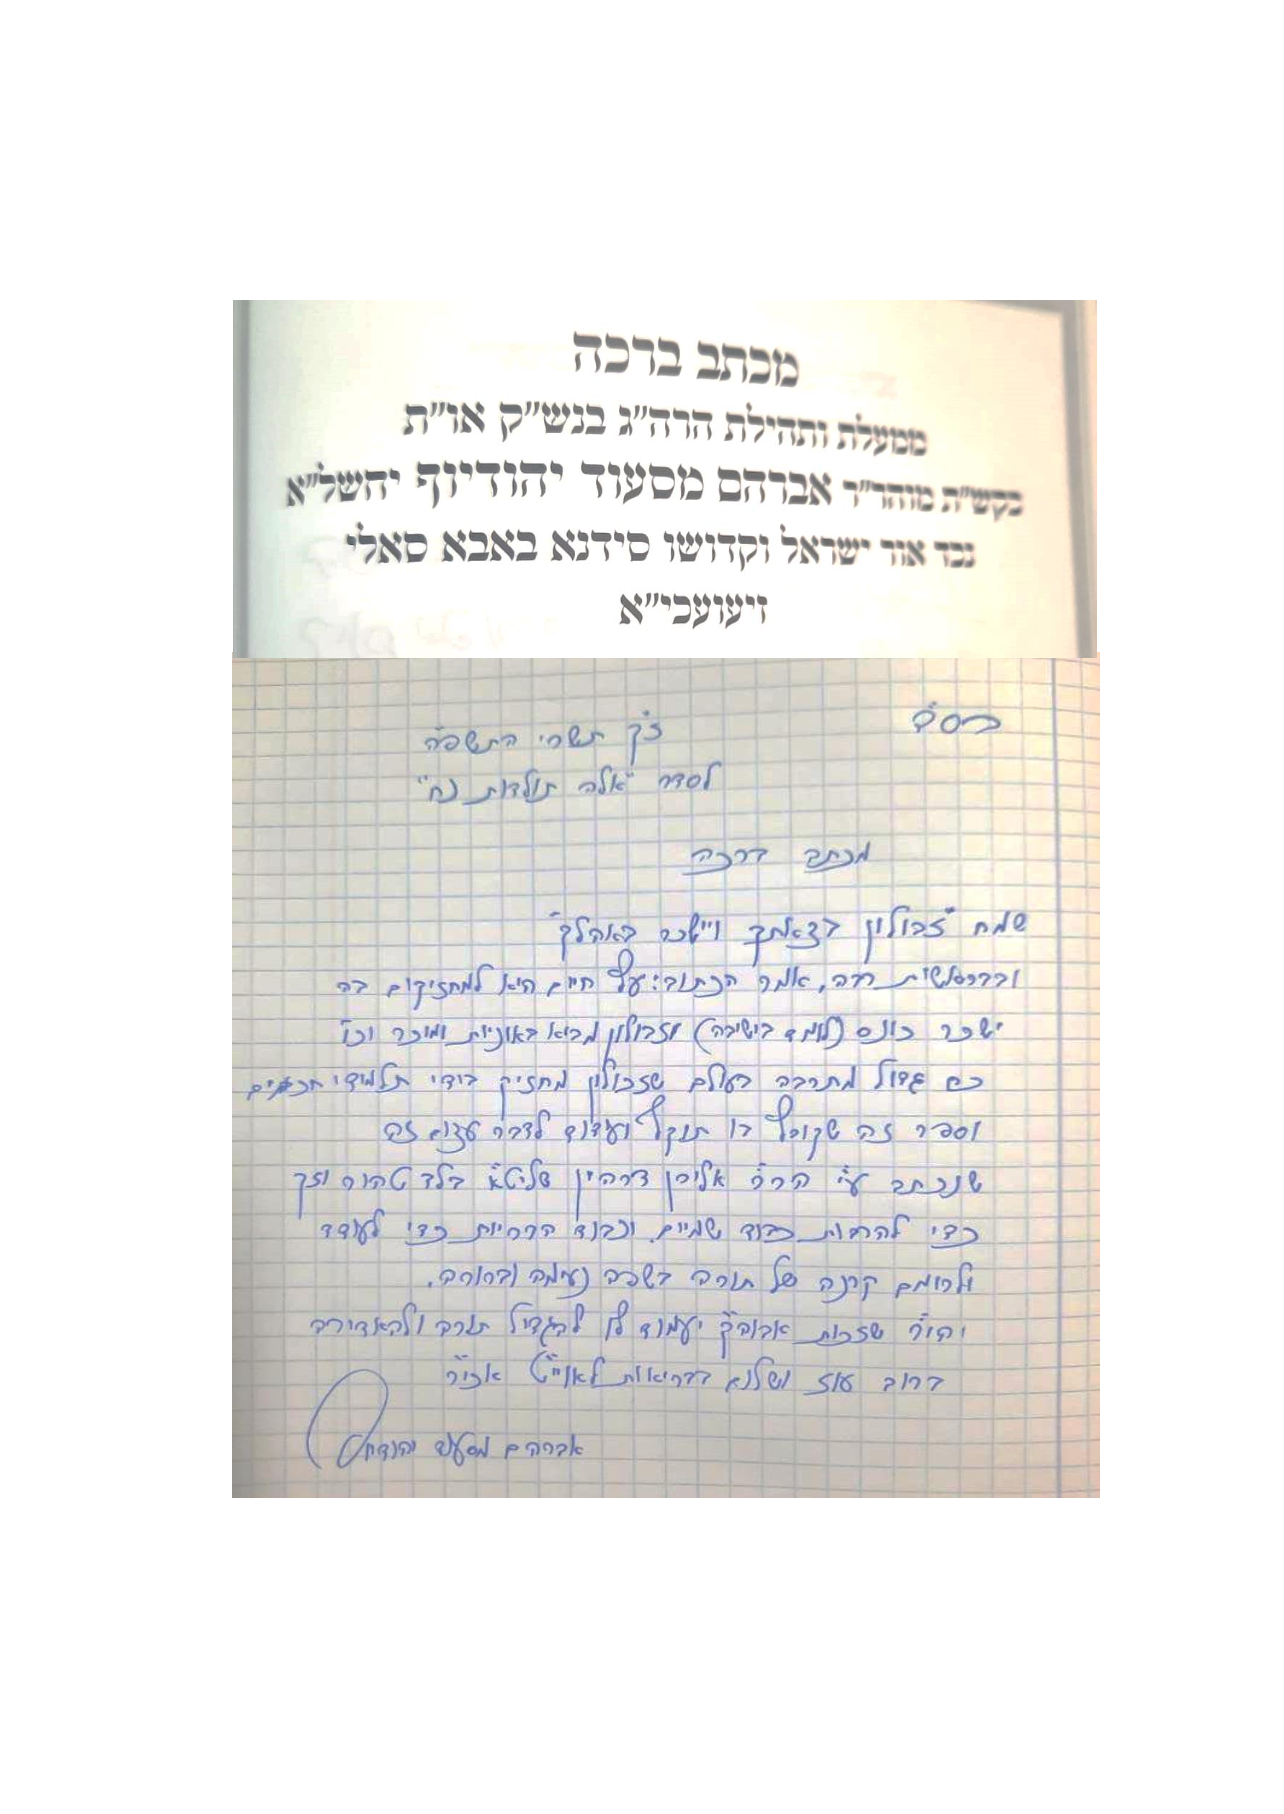 מכתב ברכה
ממעלת ותהילת הרה״ג בנש״ק או״ת
כקש״ת מוהר״ר אברהם מסעוד יהודיוף יחשל״א
נכד אור ישראל וקדושו סידנא באבא סאלי
זיעועכי״א
בס״ד
כ״ז תשרי התשפ״ה
לסדר "אלה תולדות נח"
מכתב ברכה
שמח "זבולון בצאתך ויששכר באהלך"
ובבראשית רבה, אמר הכתוב: עץ חיים היא למחזיקים בה
יששכר כונס (לומד בישיבה) וזבולון מביא באוניות ומוכר וכו'
כח גדול מתרבה בעולם שזבולון מחזיק בידי תלמידי חכמים
וספר זה שקובץ בו תוקף ועידוד לדבר עצום זה
שנכתב ע״י הרה״ר אלירן שליט״א בלב טהור וזך
כדי להרבות כבוד שמיים וכבוד הבריות כדי לעודד
ולרומם קרנה של תורה בשפה נעימה וברורה.
יהי״ר שזכות אבוה״ק יעמוד לו להגדיל תורה ולהאדירה
ברוב עוז ושלום בבריאות לאוי״ט אכי״ר
אברהם מסעוד יהודיוף